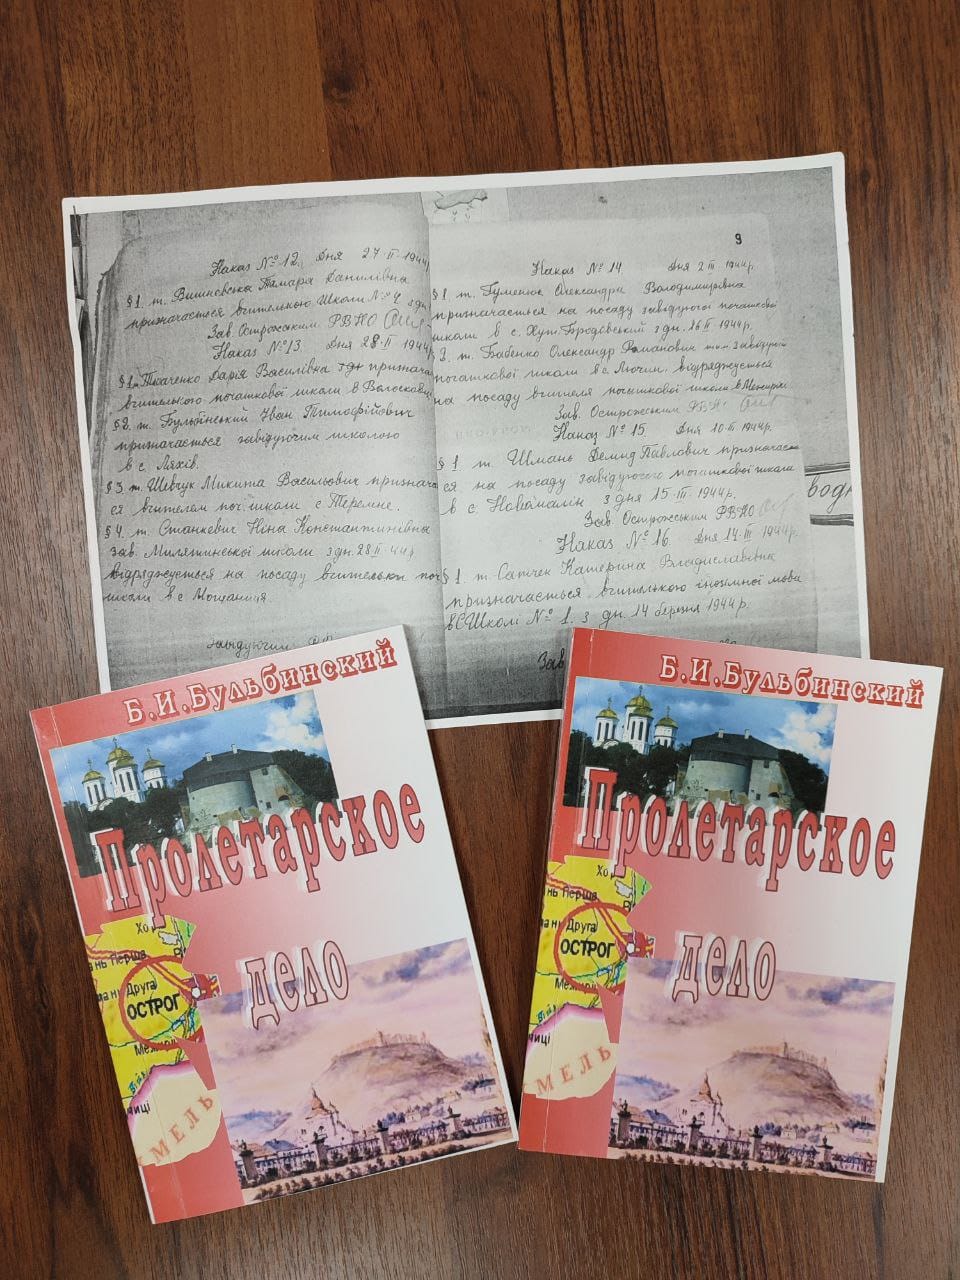 Наказ № 12. Дня 27·II·1944
§1. т. Вишневська Тамара Данилівна
призначається вчителькою Школи № 4 з дн.
Зав. Острожським РВНО
Наказ № 13 Дня 28·II 1944
§1. Ткаченко Дарія Василівна признача
вчителькою початкової школи в
§2. т. Бульбінський Іван Тимофійович
призначається завідуючим школою
в с. Ляхів.
§3. т. Шевчук Микита Васильович признача
ся вчителем поч. школи с. Теремне.
§4. т. Станкевич Ніна Константинівна
зав. Милятинської школи з дн. 28 II 44 р
відряджується на посаду вчительки поч
школи в с Мощаниця
завідуючий
9
Наказ № 14 Дня 2 III 1944р.
§1. т. Гуменюк Олександра Володимирівна
призначається на посаду завідуючої початкової
школи в с. Хут. Городєвський з дн. 26 II 1944р.
2. т. Бабенко Олександр Романович завідуюч
початкової школи в с. відряджується
на посаду вчителя початкової школи в
Зав. Острожським РВНО
Наказ № 15 Дня 10·III 1944р.
§1 т. Шмань Демид Павлович призначаєть
ся на посаду завідуючого початкової школи
в с. Новомалін з дня 15·III·1944р.
Зав. Острожським РВНО
Наказ № 16. Дня 14 III 1944р.
§1. т. Сапчек Катерина Владиславівна
призначається вчителькою іноземної мови
в СШколі № 1. з дн. 14 березня 1944р.
Зав
водн
Б.И.Бульбинский
Пролетарское
дело
Хо
нь Перша
Друга
ОСТРОГ
Меж
ниці
МЕЛЬ
Б.И.Бульбинский
Пролетарское
дело
Хо
нь Перша
на Друга
ОСТРОГ
Межи
ниці
МЕЛЬ